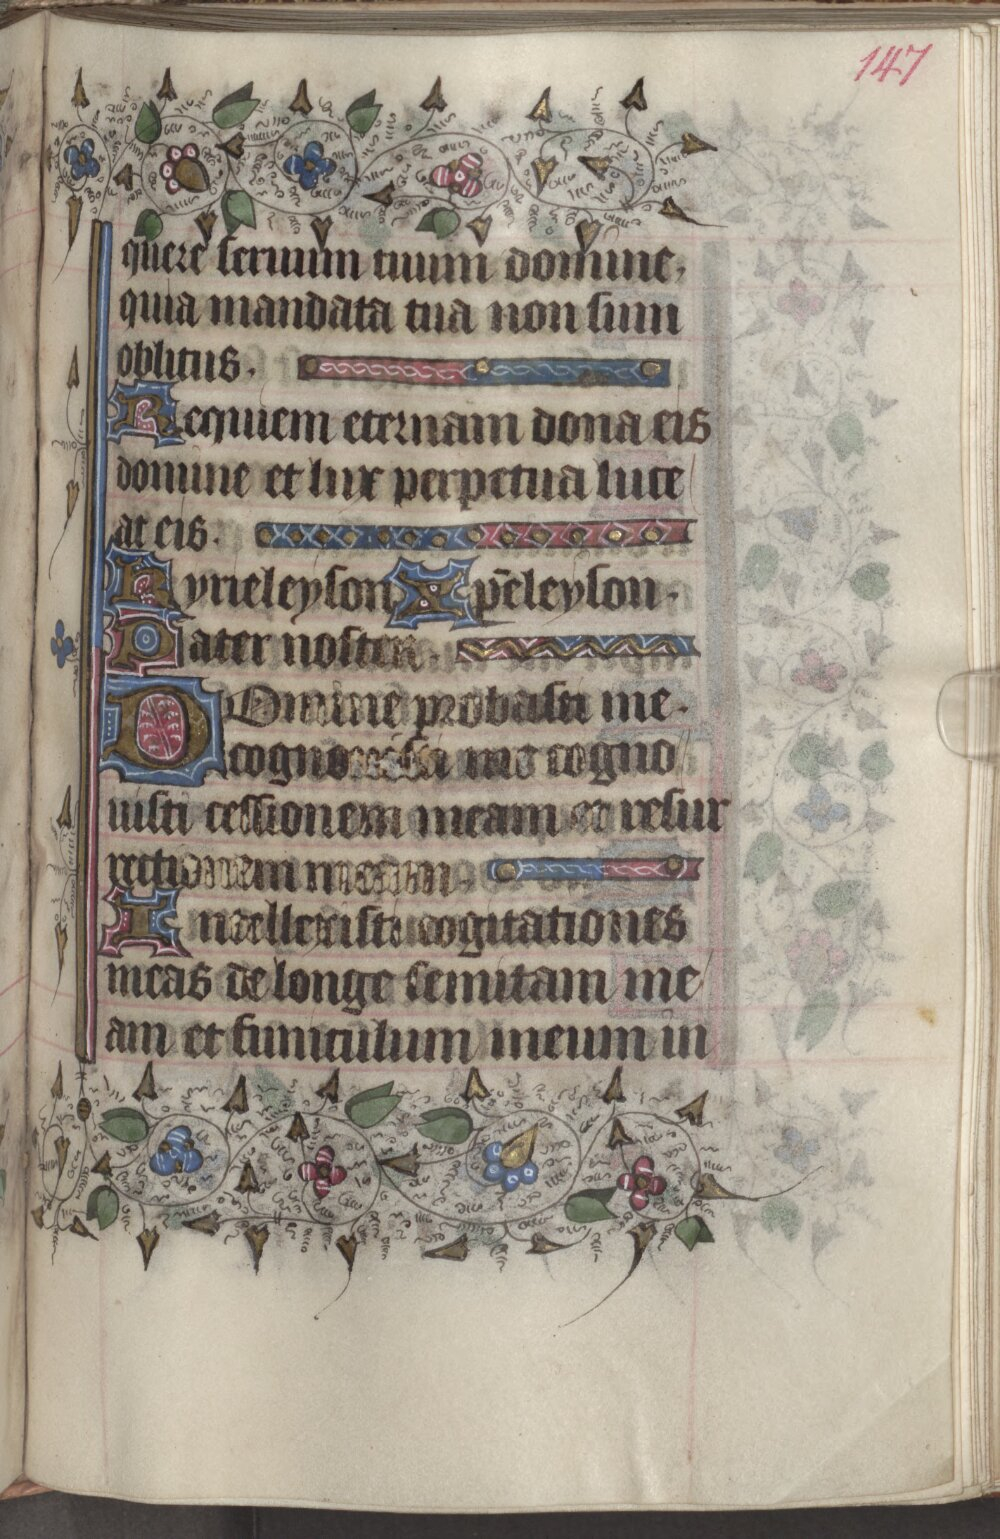 147
quere seruum tuum domine,
quia mandata tua non sum
oblitus.
Requiem eternam dona eis
domine et lux perpetua luce
at eis.
Kyrieleyson Xp̄eleyson.
Pater noster.
DOmine probasti me.
cognouisti me cogno
uisti cessionem meam et resur
rectionem meam.
Intellexisti cogitationes
meas de longe semitam me
am et funiculum meum in